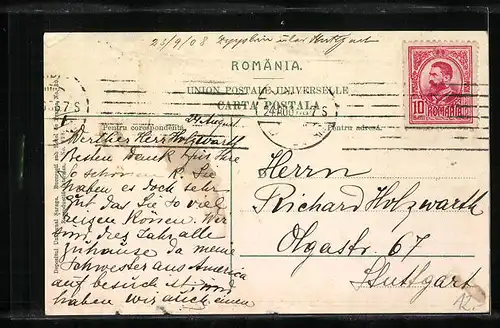 23/9/08 Zeppelin über Stuttgart
ROMÂNIA.
UNION POSTALE UNIVERSELLE
CARTA POSTALA
10 ROMANIA
7 S
24 AUG
7 S
Pentru corespondință.
Pentru adresă.
Werther Herr Holzwarth
Besten Dank für Ihre
so schönen K. Sie
haben es doch sehr
gut das Sie so viel
reisen können. Wir
sind dies Jahr alle
zuhause da meine
Schwester aus America
auf besuch ist, und
haben wir auch einen
Herrn
Richard Holzwarth
Olgastraße 67
Stuttgart